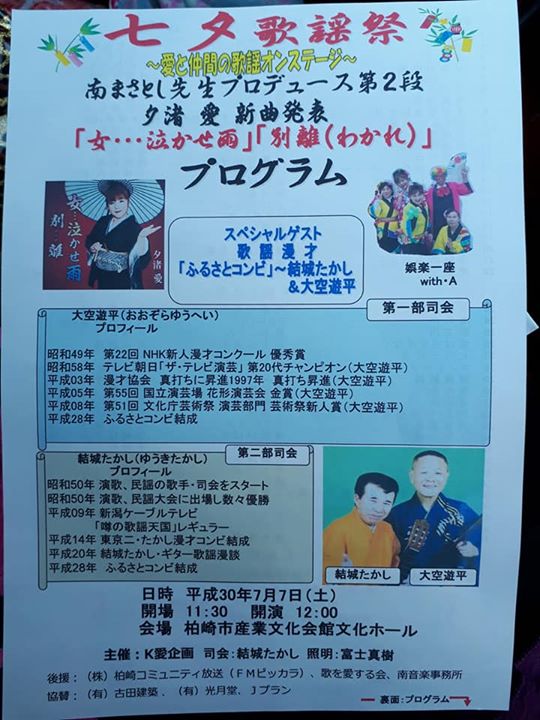 七夕歌謡祭
～愛と仲間の歌謡オンステージ～
南まさとし先生プロデュース第2段
夕渚 愛 新曲発表
「女・・・泣かせ雨」「別離(わかれ)」
プログラム
女…泣かせ雨
別…離
夕渚 愛
スペシャルゲスト
歌謡漫才
「ふるさとコンビ」～結城たかし
&大空遊平
娯楽一座
with・A
第一部司会
大空遊平(おおぞらゆうへい)
プロフィール
昭和49年 第22回 NHK新人漫才コンクール 優秀賞
昭和58年 テレビ朝日「ザ・テレビ演芸」 第20代チャンピオン(大空遊平)
平成03年 漫才協会 真打ちに昇進1997年 真打ち昇進(大空遊平)
平成05年 第55回 国立演芸場 花形演芸会 金賞(大空遊平)
平成08年 第51回 文化庁芸術祭 演芸部門 芸術祭新人賞(大空遊平)
平成28年 ふるさとコンビ結成
第二部司会
結城たかし(ゆうきたかし)
プロフィール
昭和50年 演歌、民謡の歌手・司会をスタート
昭和50年 演歌、民謡大会に出場し数々優勝
平成09年 新潟ケーブルテレビ
「噂の歌謡天国」レギュラー
平成14年 東京二・たかし漫才コンビ結成
平成20年 結城たかし・ギター歌謡漫談
平成28年 ふるさとコンビ結成
結城たかし
大空遊平
日時 平成30年7月7日(土)
開場 11:30 開演 12:00
会場 柏崎市産業文化会館文化ホール
主催:K愛企画 司会:結城たかし 照明:富士真樹
後援:(株)柏崎コミュニティ放送(FMピッカラ)、歌を愛する会、南音楽事務所
協賛:(有)古田建築、(有)光月堂、Jプラン
裏面:プログラム